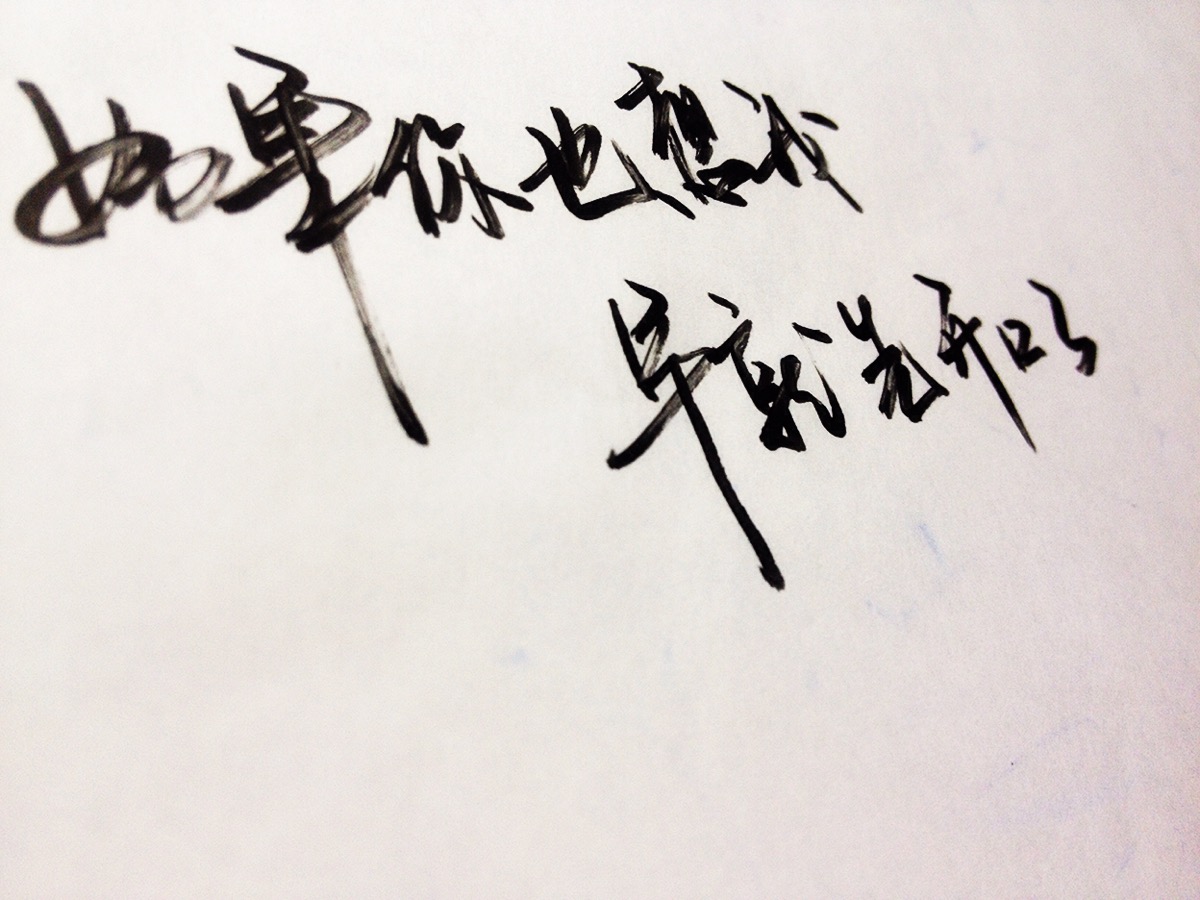 如果你也想我
早就先开口了